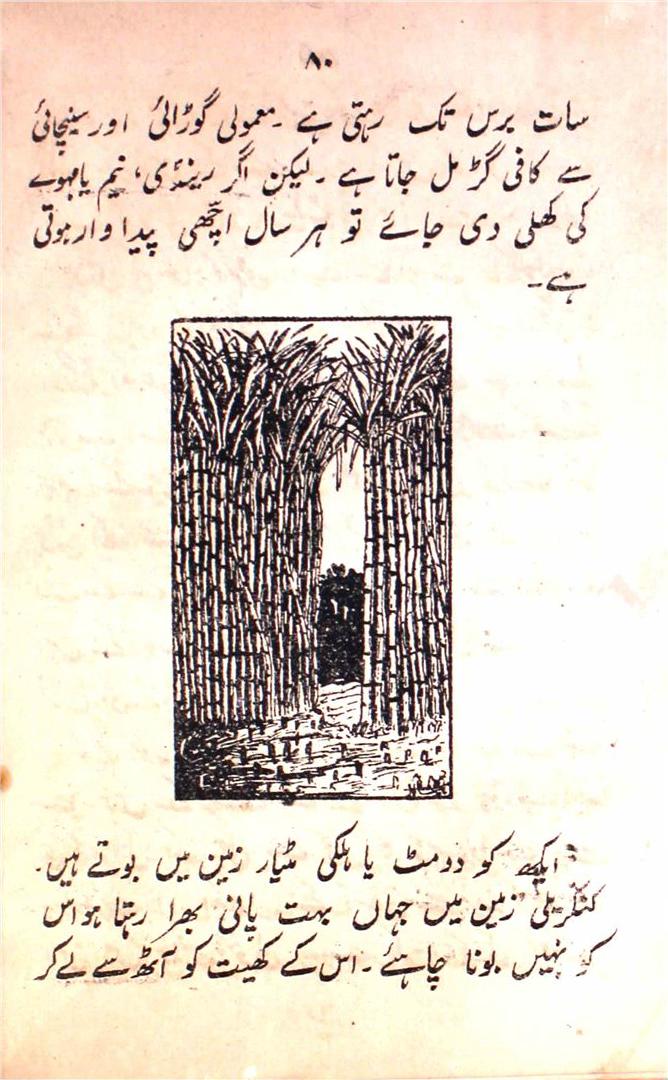 ۸۰
سات برس تک رہتی ہے ۔ معمولی گوڑائی اور سینچائی
سے کافی گڑ مل جاتا ہے ۔ لیکن اگر رینڈی، نیم یا مہوے
کی کھلی دی جائے تو ہر سال اچّھی پیدا وار ہوتی
ہے ۔
ایکھ کو دومٹ یا ہلکی مٹیار زمین میں بوتے ہیں ۔
کنکریلی زمین میں جہاں بہت پانی بھرا رہتا ہو اس
کو نہیں بونا چاہئے ۔ اس کے کھیت کو آٹھ سے لے کر